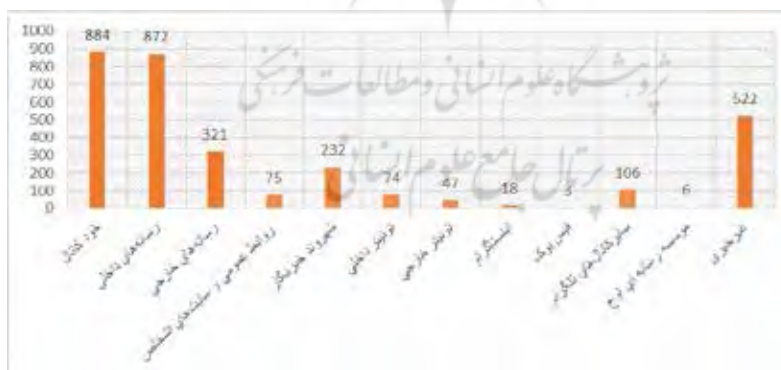 پژوهشگاه علوم انسانی و مطالعات فرهنگی
پرتال جامع علوم انسانی
1000
900
800
700
600
500
400
300
200
100
0
884
872
321
75
232
74
47
18
3
106
6
522
خود کانال
رسانه‌های داخلی
رسانه‌های خارجی
روابط عمومی و سایت‌های اشخاص
شهروند خبرنگار
توئیتر داخلی
توئیتر خارجی
اینستاگرام
فیس بوک
سایر کانال‌های تلگرام
موسسه رسانه ای اوج
غیرخبری